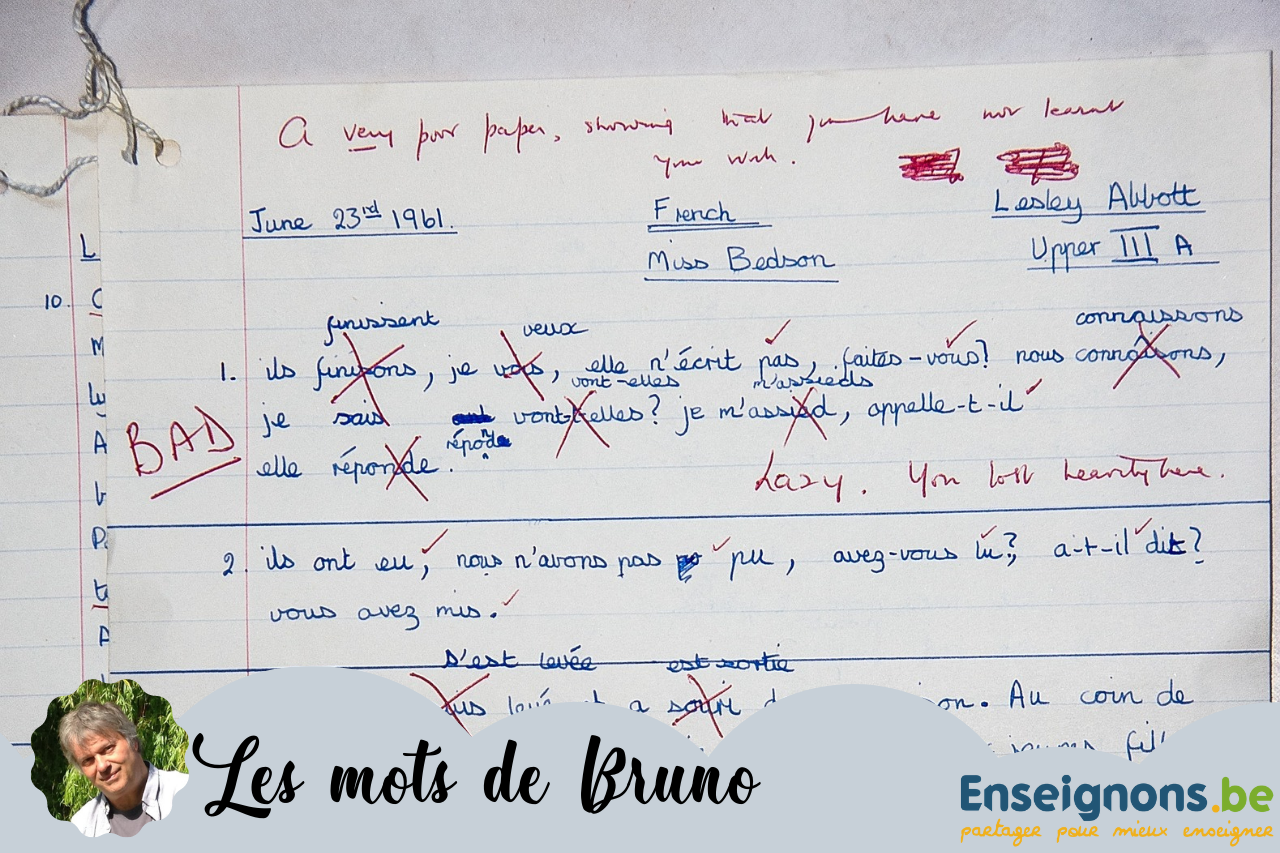 A very poor paper, showing that you have not learnt
your work.
June 23rd 1961.
French
Lesley Abbott
Miss Bedson
Upper III A
L
10. C
M
A
finissent veux connaissons
1. ils finisons, je vos, elle n'écrit pas, faites-vous? nous connaîsons,
vont-elles m'assieds
je sais vont-t-elles? je m'assied, appelle-t-il
BAD
réponde
elle réponde.
Lazy. You lost heavily here.
2. ils ont eu, nous n'avons pas pu, avez-vous lu?, a-t-il dit?
vous avez mis.
s'est levée est sortie
levé a souri on. Au coin de
Les mots de Bruno
Enseignons.be
partager pour mieux enseigner